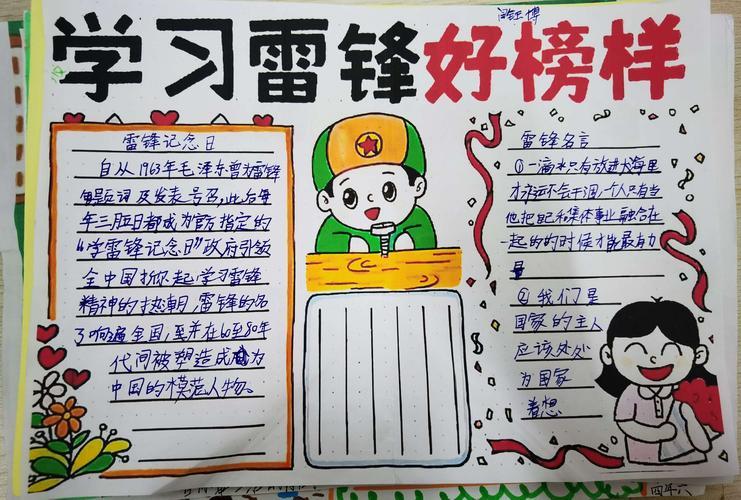 学习雷锋好榜样
雷锋记念日
自从1963年毛泽东曾为雷锋
题词及发表号召,此后每
年三月五日都成为官方指定的
“学雷锋记念日”政府引领
全中国掀起学习雷锋
精神的热潮,雷锋的名
了响遍全国,至并在60到80年
代间被塑造成为
中国的模范人物。
雷锋名言
①一滴水只有放进大海里
才永远不会干涸,个人只有当
他把自己和集体事业融合在
一起的的时候才能最有力
量
②我们是
国家的主人
应该处处
为国家
着想
四年六